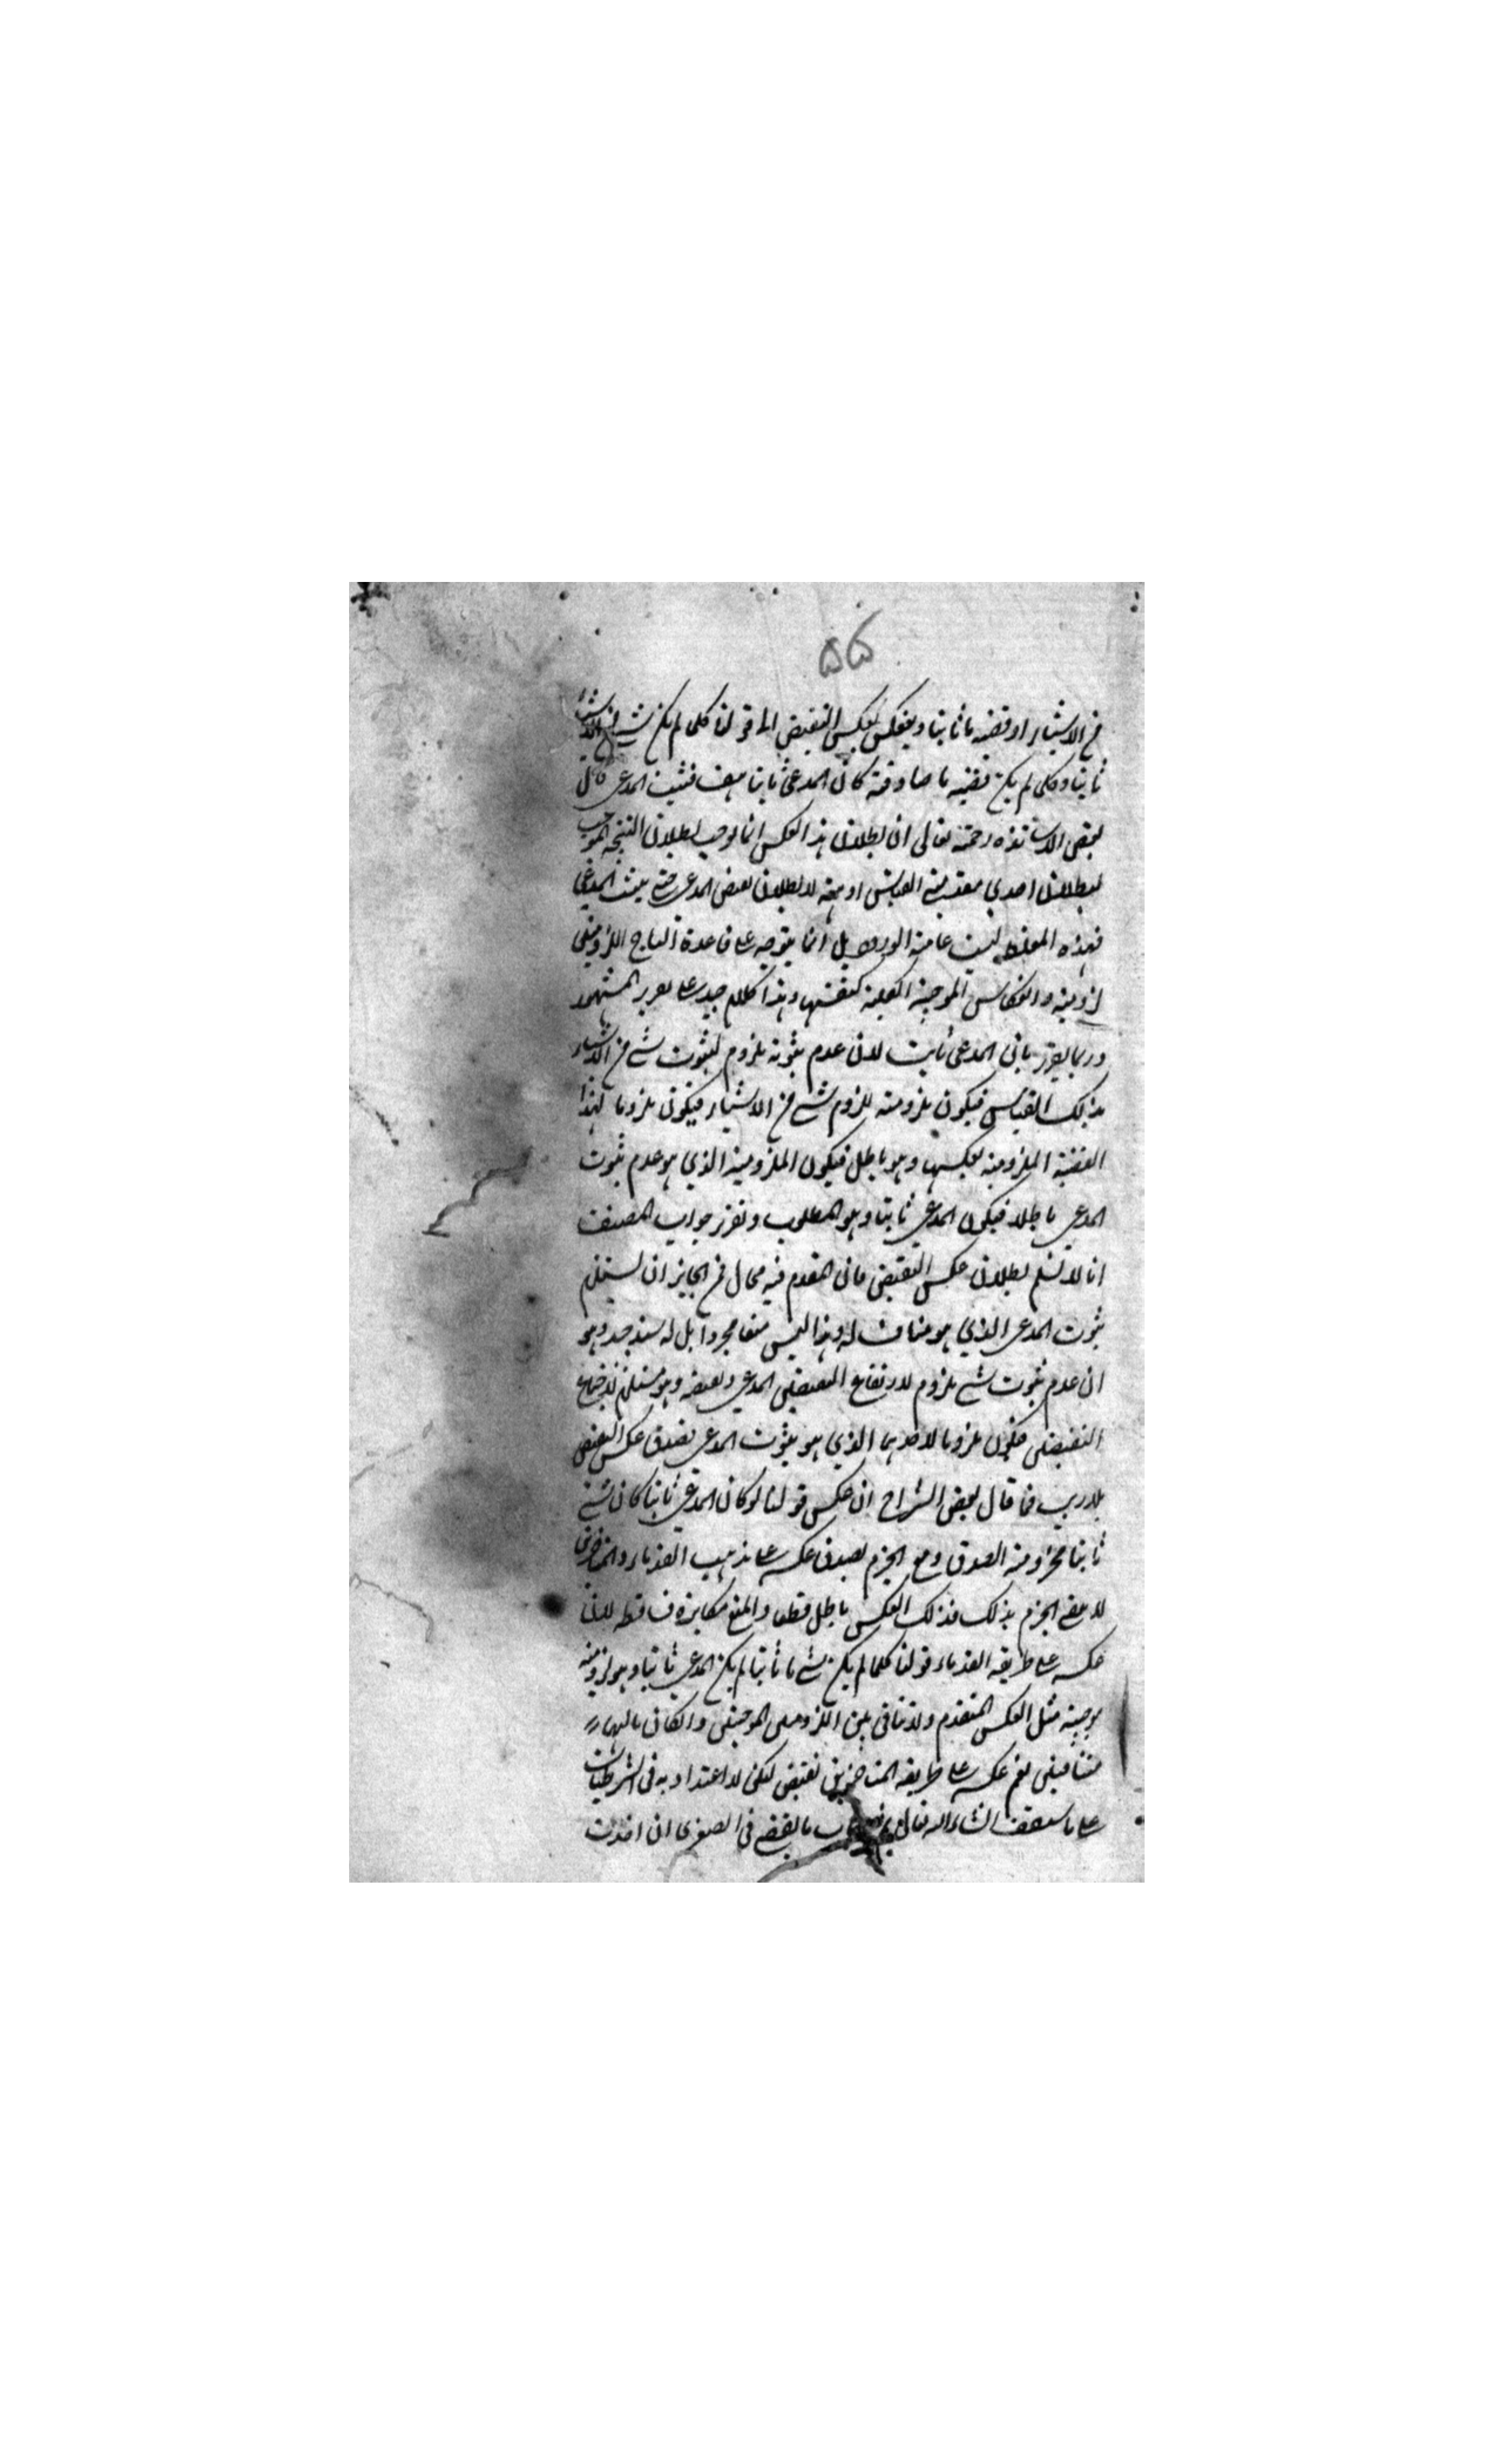 ۵۵
من الاشياء او قضية ما ثابتا وينعكس بعكس النقيض الى قولنا كلما لم يكن شئ من الاشياء
ثابتا وكلما لم يكن قضية ما صادقة كان المدعى ثابتا هف فثبت المدعى قال
بعض الاساتذه رحمة تعالى ان بطلان هذا العكس انما يوجب بطلان النتيجه الموجب
لبطلان احدى مقدمتي القياس او هيئته لا بطلان نقيض المدعى حتى يثبت المدعى
فهذه المغلطه ليست عامة الورود بل انما يتوجه على قاعدة انتاج اللزوميتين
لزومية وانعكاس الموجبة الكلية كنفسها وهذا كلام جيد على تقرير المشهور
وربما يقرر بان المدعى ثابت لان عدم ثبوته ملزوم لثبوت شئ من الاشياء
بذلك القياس فيكون ملزوميته للزوم شئ من الاشياء فيكون ملزوما لهذا
القضية الملزومية بعكسها وهو باطل فيكون الملزومية الذي هو عدم ثبوت
المدعى باطلا فيكون المدعى ثابتا وهو المطلوب وتقرر جواب المصنف
انا لا نسلم بطلان عكس النقيض فان المقدم فيه محال فمن الجايز ان يستلزم
ثبوت المدعى الذي هو مناف له وهذا ليس منعا مجردا بل له سند جيد وهو
ان عدم ثبوت شئ ملزوم لارتفاع النقيضين المدعى ونقيضه وهو مستلزم لاجتماع
النقيضين فيكون ملزوما لاحدهما الذي هو ثبوت المدعى فصدق عكس النقيض
بلا ريب فما قال بعض الشراح ان عكس قولنا لو كان المدعى ثابتا كان شئ
ثابتا مجزومة الصدق ومع الجزم بصدق عكسه على مذهب القدماء والمتاخرين
لا يبقى الجزم بذلك فذلك العكس باطل قطعا والمنع مكابرة ساقطه لان
عكسه على طريقة القدماء قولنا كلما لم يكن شئ ما ثابتا لم يكن المدعى ثابتا وهو لزومية
موجبة مثل العكس المتقدم ولا تنافى بين اللزوميتين الموجبتين وان كان تالياهما
متنافيين نعم عكسه على طريقة المتاخرين نقيض لكن لا اعتداد به في الشرطيات
على ما ستقف انشاء الله تعالى بالنقض في الصغرى ان اخذت